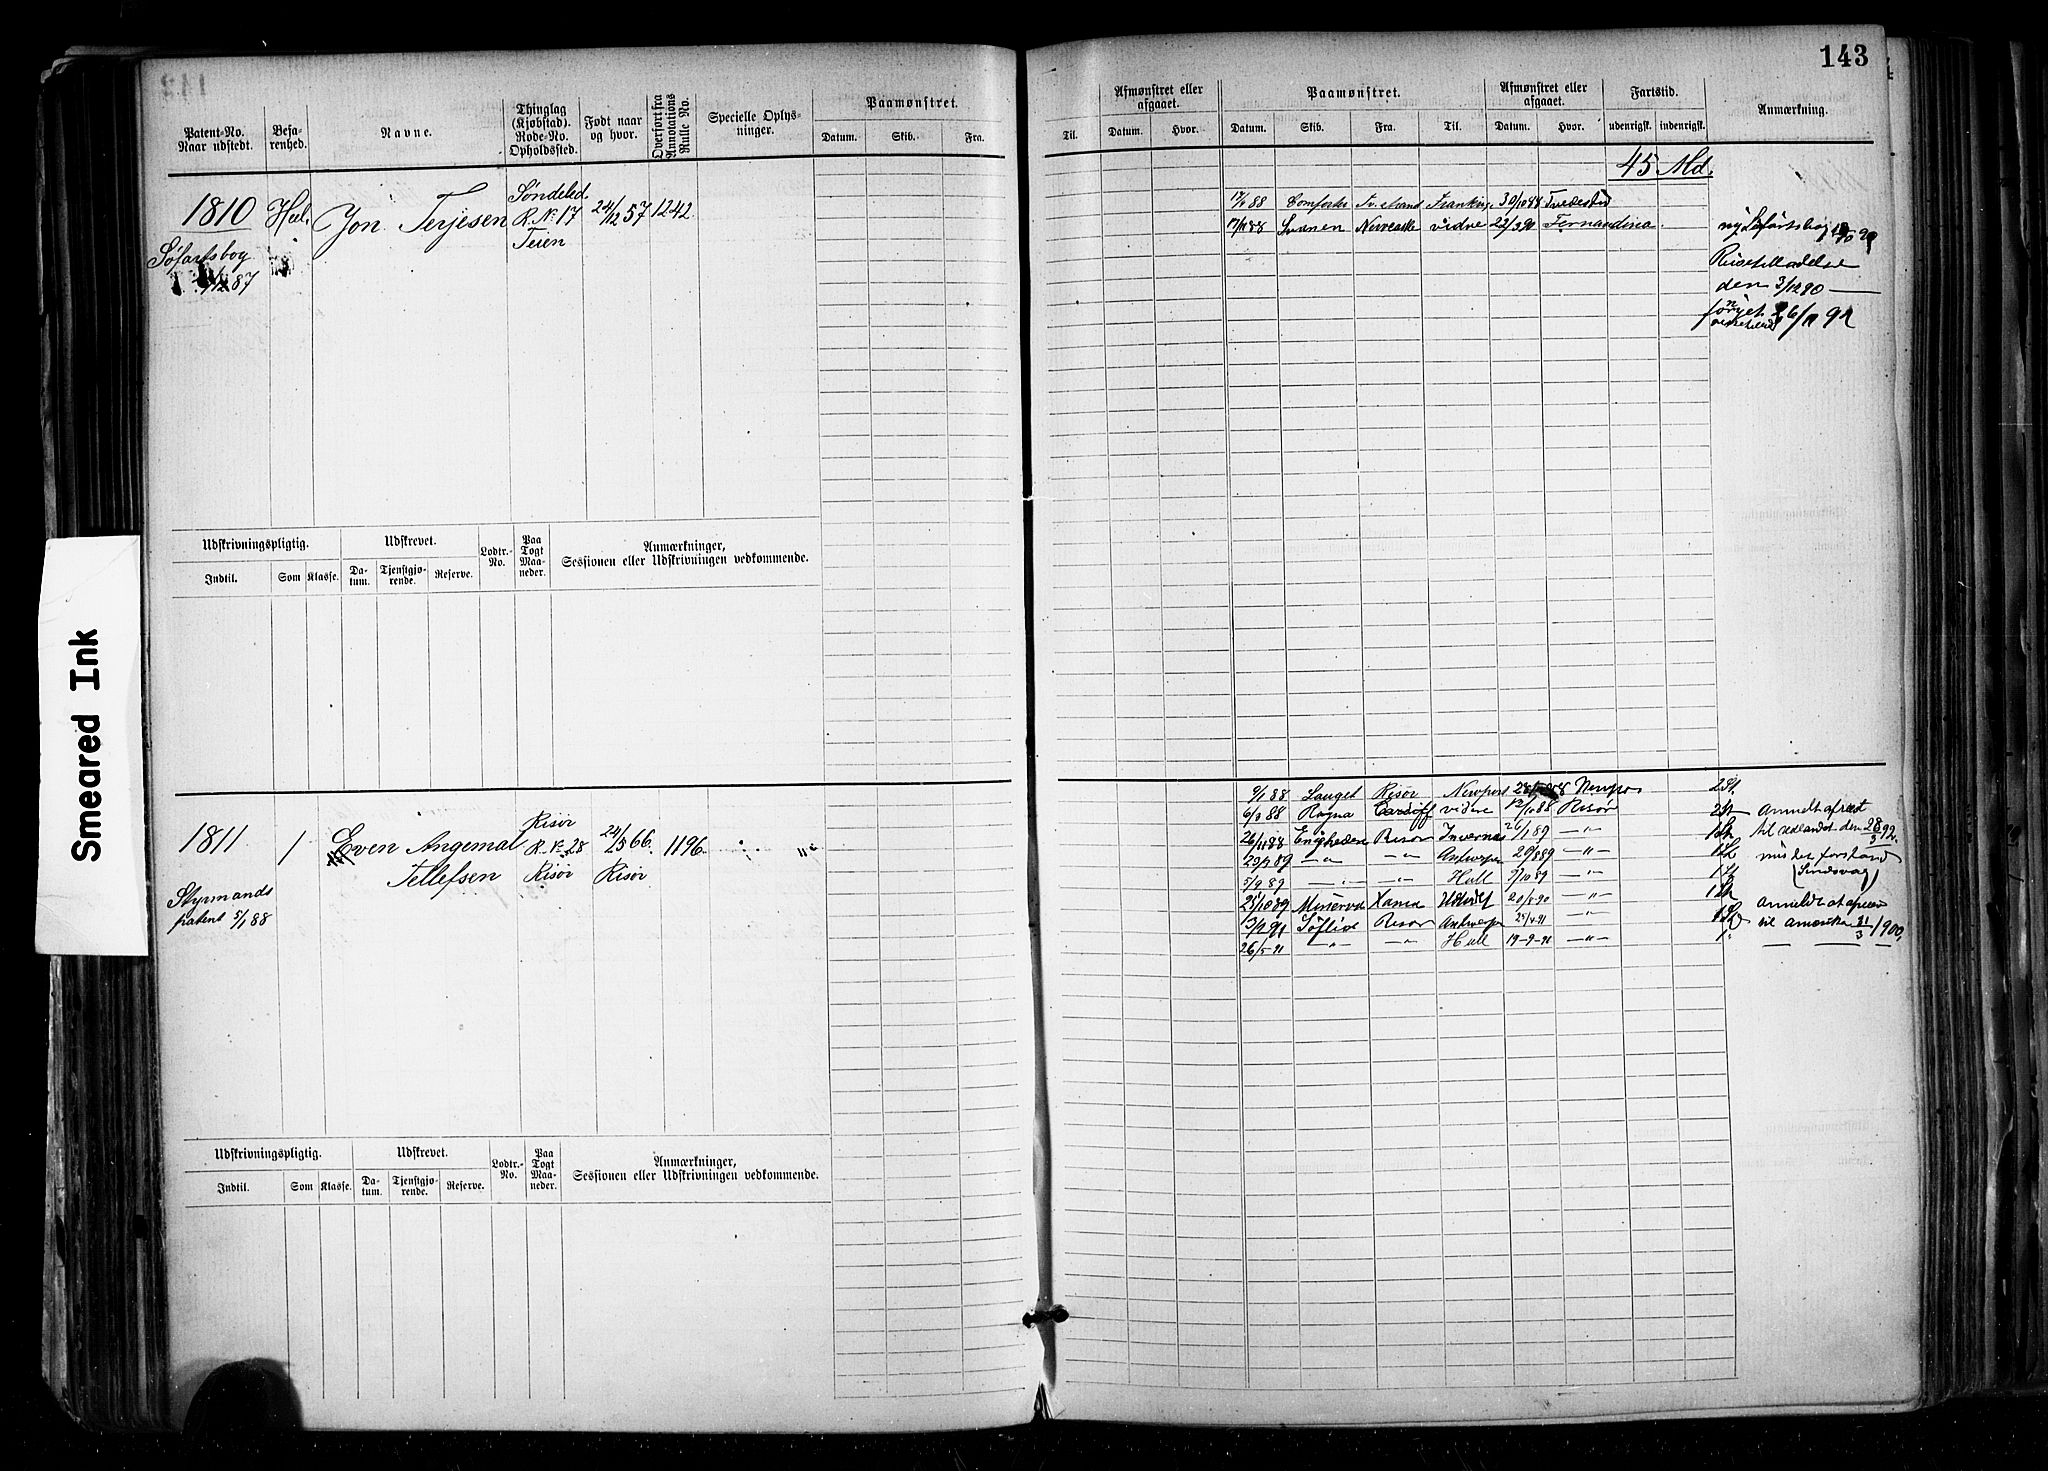 143
Patent-No. Naar udstedt.
Befarenhed.
Navne.
Thinglag (Kjøbstad). Rode-No. Opholdssted.
Født naar og hvor.
Overført fra Annotations Rulle No.
Specielle Oplysninger.
Paamønstret.
Datum. Skib. Fra.
Til.
Afmønstret eller afgaaet.
Datum. Hvor.
Paamønstret.
Datum. Skib. Fra. Til.
Afmønstret eller afgaaet.
Datum. Hvor.
Fartstid.
udenrigsk. indenrigsk.
Anmærkning.
45 Md.
1810 Hel. Jon Terjesen
Søndeled
R. No 17
Teien
24/12 57 1242
Søfartsbog
/12 87
88 Tv.strand 30/10 88 Tvedestrand
17/11 88 Svanen vidre 22/3 90 Fernandina
ny Søfartsbog
den 3/12 90
26/11 92
Udskrivningspligtig. Udskrevet. Lodtr.-No. Paa Togt Maaneder. Anmærkninger, Sessionen eller Udskrivningen vedkommende.
Indtil. Som Klasse. Datum. Tjenstgjørende. Reserve.
1811 1 Even Angemal
Tellefsen
Risør
R. No 28
Risør
24/8 66
Risør
1196
Styrmands
patent 5/1 88
9/1 88 Lauget Risør Newport
6/9 88 Ragna Cardiff vidre 12/10 88 Risør
26/11 88 Enigheden Risør Invernes 26/1 89 —"—
23/2 89 —"— —"— Antwerpen 20/8 89 —"—
5/9 89 —"— —"— Hull 3/10 89 —"—
25/10 89 Minerva Udlndt 20/5 90 —"—
3/2 91 Søflid Risør Antwerpen 25/4 91 —"—
26/5 91 —"— —"— Hull 19-9-91 —"—
anmeldt afreist
til Udlandet den 28/3 92.
mistet forstand
(Sindsvag)
anmeldt afreist
til Amerika 31/3 1900.
Udskrivningspligtig. Udskrevet. Lodtr.-No. Paa Togt Maaneder. Anmærkninger, Sessionen eller Udskrivningen vedkommende.
Indtil. Som Klasse. Datum. Tjenstgjørende. Reserve.
Smeared Ink